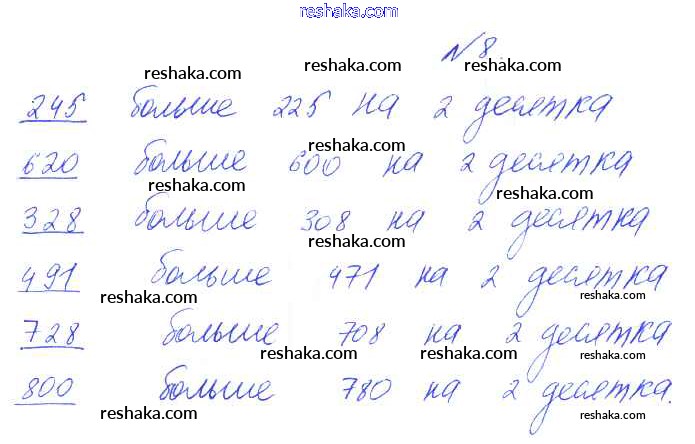 reshaka.com
№ 8
reshaka.com reshaka.com reshaka.com
245 больше 225 на 2 десятка
reshaka.com
620 больше 600 на 2 десятка
reshaka.com reshaka.com
328 больше 308 на 2 десятка
reshaka.com
491 больше 471 на 2 десятка
reshaka.com reshaka.com
728 больше 708 на 2 десятка
reshaka.com reshaka.com reshaka.com
800 больше 780 на 2 десятка.
reshaka.com reshaka.com reshaka.com